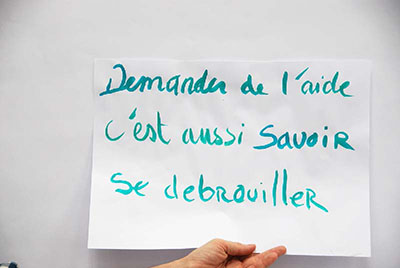 Demander de l'aide
c'est aussi SAVOIR
se debrouiller